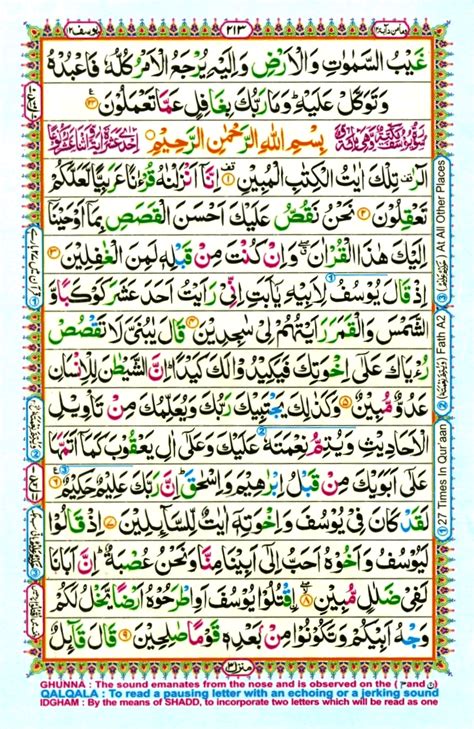 یوسف ۱۲
۲۱۳
وما من دآبۃ ۱۲
غَيْبُ السَّمٰوٰتِ وَالْاَرْضِ وَاِلَيْهِ يُرْجَعُ الْاَمْرُ كُلُّهٗ فَاعْبُدْهُ
وَتَوَكَّلْ عَلَيْهِ ؕ وَمَا رَبُّكَ بِغَافِلٍ عَمَّا تَعْمَلُوْنَ
بِسْمِ اللّٰهِ الرَّحْمٰنِ الرَّحِيْمِ
الٓرٰ ۫ تِلْكَ اٰيٰتُ الْكِتٰبِ الْمُبِيْنِ ۟ۙ۱ اِنَّاۤ اَنْزَلْنٰهُ قُرْءٰنًا عَرَبِيًّا لَّعَلَّكُمْ
تَعْقِلُوْنَ ۲ نَحْنُ نَقُصُّ عَلَيْكَ اَحْسَنَ الْقَصَصِ بِمَاۤ اَوْحَيْنَاۤ
اِلَيْكَ هٰذَا الْقُرْاٰنَ ۖ وَاِنْ كُنْتَ مِنْ قَبْلِهٖ لَمِنَ الْغٰفِلِيْنَ ۳
اِذْ قَالَ يُوْسُفُ لِاَبِيْهِ يٰۤاَبَتِ اِنِّيْ رَاَيْتُ اَحَدَ عَشَرَ كَوْكَبًا وَّ
الشَّمْسَ وَالْقَمَرَ رَاَيْتُهُمْ لِيْ سٰجِدِيْنَ ۴ قَالَ يٰبُنَيَّ لَا تَقْصُصْ
رُءْيَاكَ عَلٰۤى اِخْوَتِكَ فَيَكِيْدُوْا لَكَ كَيْدًا ؕ اِنَّ الشَّيْطٰنَ لِلْاِنْسَانِ
عَدُوٌّ مُّبِيْنٌ ۵ وَكَذٰلِكَ يَجْتَبِيْكَ رَبُّكَ وَيُعَلِّمُكَ مِنْ تَاْوِيْلِ
الْاَحَادِيْثِ وَيُتِمُّ نِعْمَتَهٗ عَلَيْكَ وَعَلٰۤى اٰلِ يَعْقُوْبَ كَمَاۤ اَتَمَّهَا
عَلٰۤى اَبَوَيْكَ مِنْ قَبْلُ اِبْرٰهِيْمَ وَاِسْحٰقَ ؕ اِنَّ رَبَّكَ عَلِيْمٌ حَكِيْمٌ ۶
لَقَدْ كَانَ فِيْ يُوْسُفَ وَاِخْوَتِهٖۤ اٰيٰتٌ لِّلسَّآئِلِيْنَ ۷ اِذْ قَالُوْا
لَيُوْسُفُ وَاَخُوْهُ اَحَبُّ اِلٰۤى اَبِيْنَا مِنَّا وَنَحْنُ عُصْبَةٌ ؕ اِنَّ اَبَانَا
لَفِيْ ضَلٰلٍ مُّبِيْنِ ۸ اقْتُلُوْا يُوْسُفَ اَوِ اطْرَحُوْهُ اَرْضًا يَّخْلُ لَكُمْ
وَجْهُ اَبِيْكُمْ وَتَكُوْنُوْا مِنْۢ بَعْدِهٖ قَوْمًا صٰلِحِيْنَ ۹ قَالَ قَآئِلٌ
منزل ۳
① 27 Times In Qur'aan ② Fath A2 ③ At All Other Places
GHUNNA : The sound emanates from the nose and is observed on the ( ن and م )
QALQALA : To read a pausing letter with an echoing or a jerking sound
IDGHAM : By the means of SHADD, to incorporate two letters which will be read as one